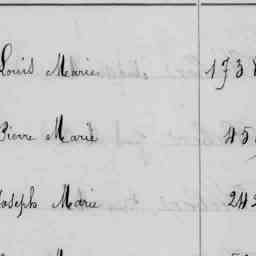 Louis Marie 1738
Pierre Marie 45
Joseph Marie 242